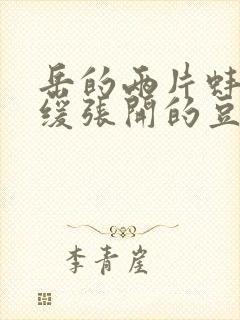 岳的两片蚌
缓张開的豆
李青崖